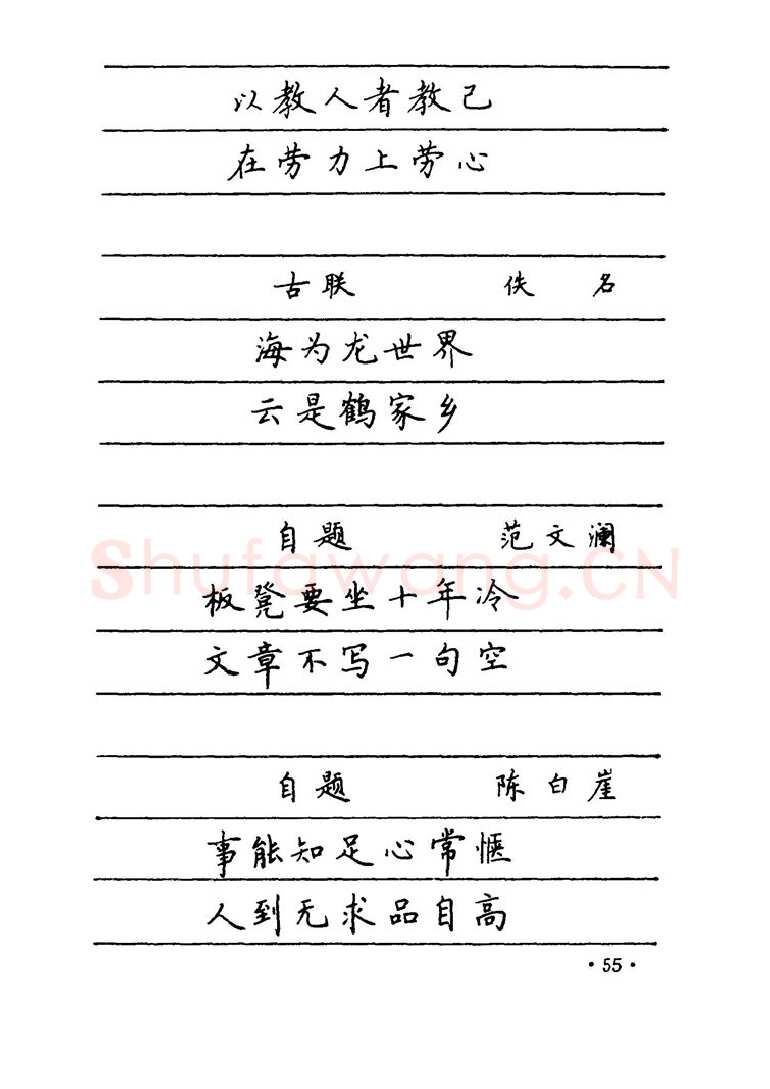 以教人者教己
在劳力上劳心
古联 佚 名
海为龙世界
云是鹤家乡
自题 范文澜
Shufawang.CN
板凳要坐十年冷
文章不写一句空
自题 陈白崖
事能知足心常惬
人到无求品自高
·55·